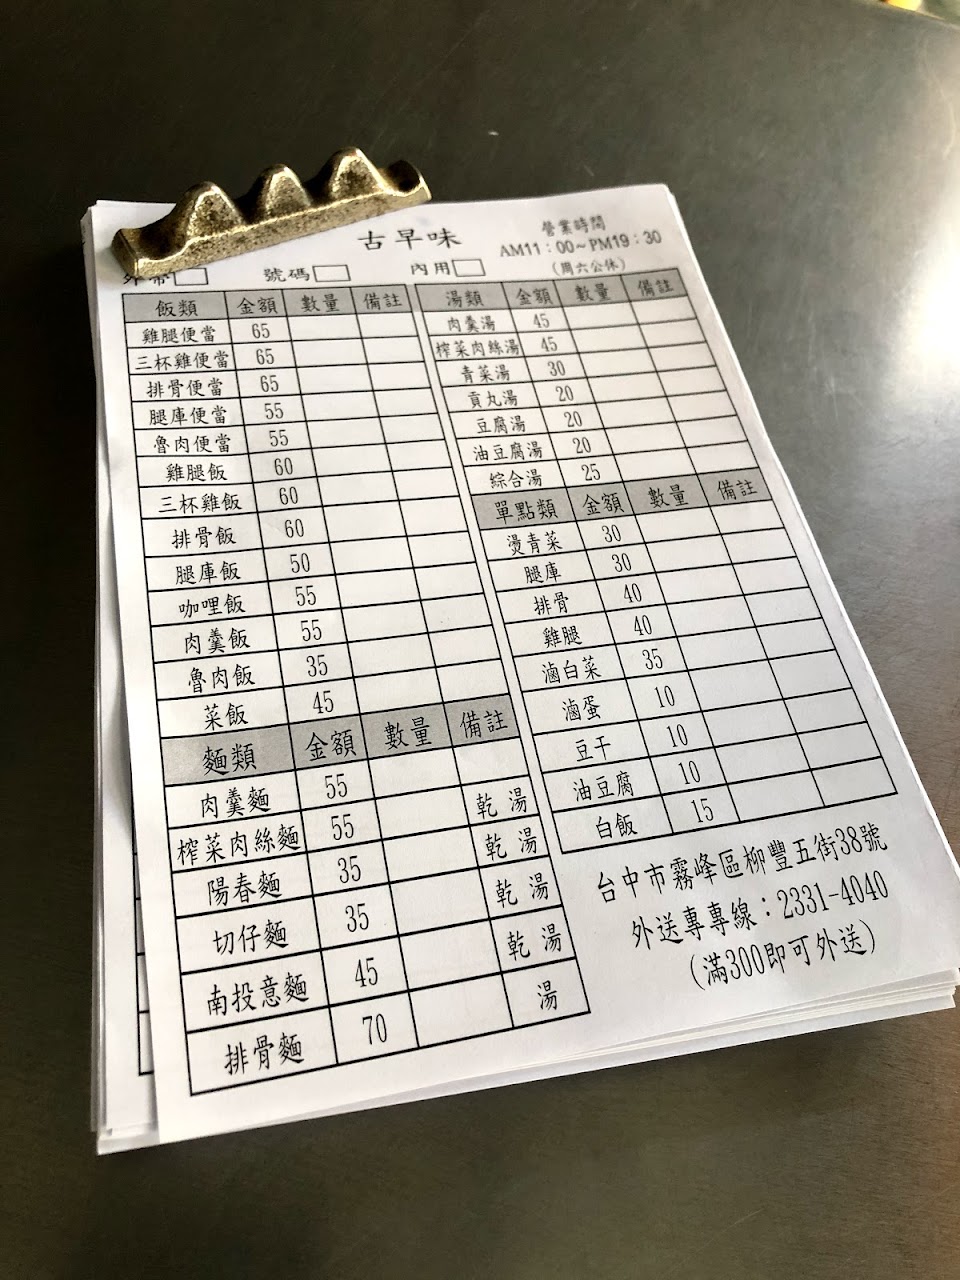 古早味
營業時間
AM11：00~PM19：30
(周六公休)
外帶 號碼 內用
飯類 金額 數量 備註
雞腿便當 65
三杯雞便當 65
排骨便當 65
腿庫便當 55
魯肉便當 55
雞腿飯 60
三杯雞飯 60
排骨飯 60
腿庫飯 50
咖哩飯 55
肉羹飯 55
魯肉飯 35
菜飯 45
麵類 金額 數量 備註
肉羹麵 55
榨菜肉絲麵 55 乾 湯
陽春麵 35 乾 湯
切仔麵 35 乾 湯
南投意麵 45 乾 湯
排骨麵 70 湯
湯類 金額 數量 備註
肉羹湯 45
榨菜肉絲湯 45
青菜湯 30
貢丸湯 20
豆腐湯 20
油豆腐湯 20
綜合湯 25
單點類 金額 數量 備註
燙青菜 30
腿庫 30
排骨 40
雞腿 40
滷白菜 35
滷蛋 10
豆干 10
油豆腐 10
白飯 15
台中市霧峰區柳豐五街38號
外送專專線：2331-4040
(滿300即可外送)